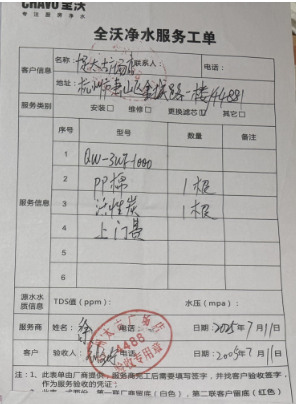 CHAVO 全沃
专 注 服 务 净 水
全沃净水服务工单
客户信息
名称: 联系人: 电话:
地址: 杭州市萧山区金城路 一楼
服务类别 安装□ 维修□ 更换滤芯□ 其它□
服务信息
序号 型号 数量 备注
1 QW-
2 PP棉 1根
3 活性炭 1根
4 上门费
5
6
源水水质信息 TDS值(ppm): 水压(mpa):
服务商 姓名: 电话: 日期: 2025年7月11日
客户 验收人: 电话: 日期: 2005年7月11日
4488
验收专用章
注:1、此表单由厂商提供,服务商完工后需要填写签字,并找客户验收签字,
作为服务验收的凭证;
第二联客户留底(红色)